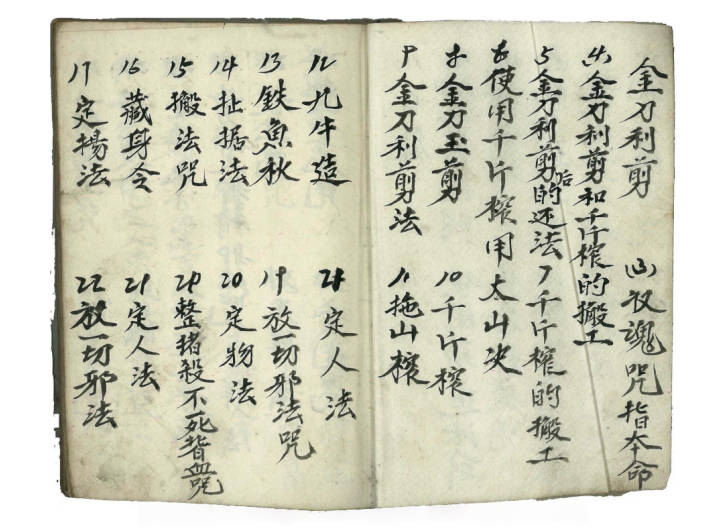 金刀利剪 (3) 收魂咒指本命
(4) 金刀利剪和千斤榨的搬工
5 金刀利剪后的还法 7 千斤榨的搬工
6 使用千斤榨用太山决
8 金刀玉剪 10 千斤榨
9 金刀利剪法 11 拖山榨
12 九牛造 21 定人法
13 鉄魚秋 19 放一切邪法咒
14 扯据法 20 定物法
15 搬法咒 20 整猪殺不死皆血咒
16 藏身令 21 定人法
17 定揚法 22 放一切邪法